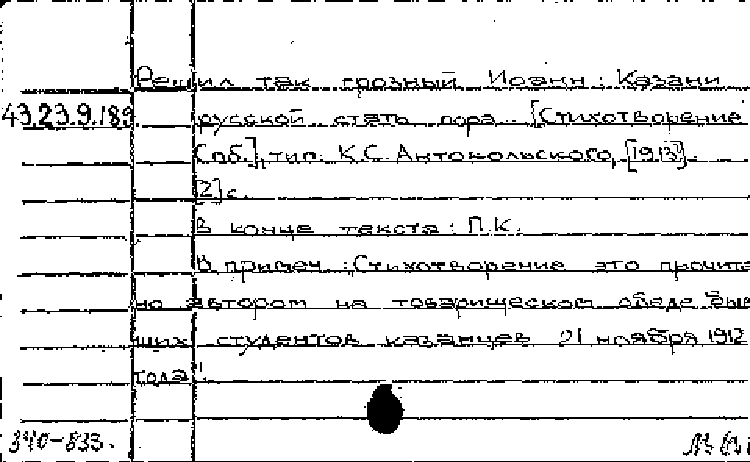 Решил так грозный Иоанн: Казани
43.23.9.189 русской стать пора. [Стихотворение
Спб.], тип. К.С. Антокольского, [1913].
[2] с.
В конце текста: П.К.
В примеч.: Стихотворение это прочита
но автором на товарищеском обеде быв
ших студентов казанцев 21 ноября 1912
года".
340-833.